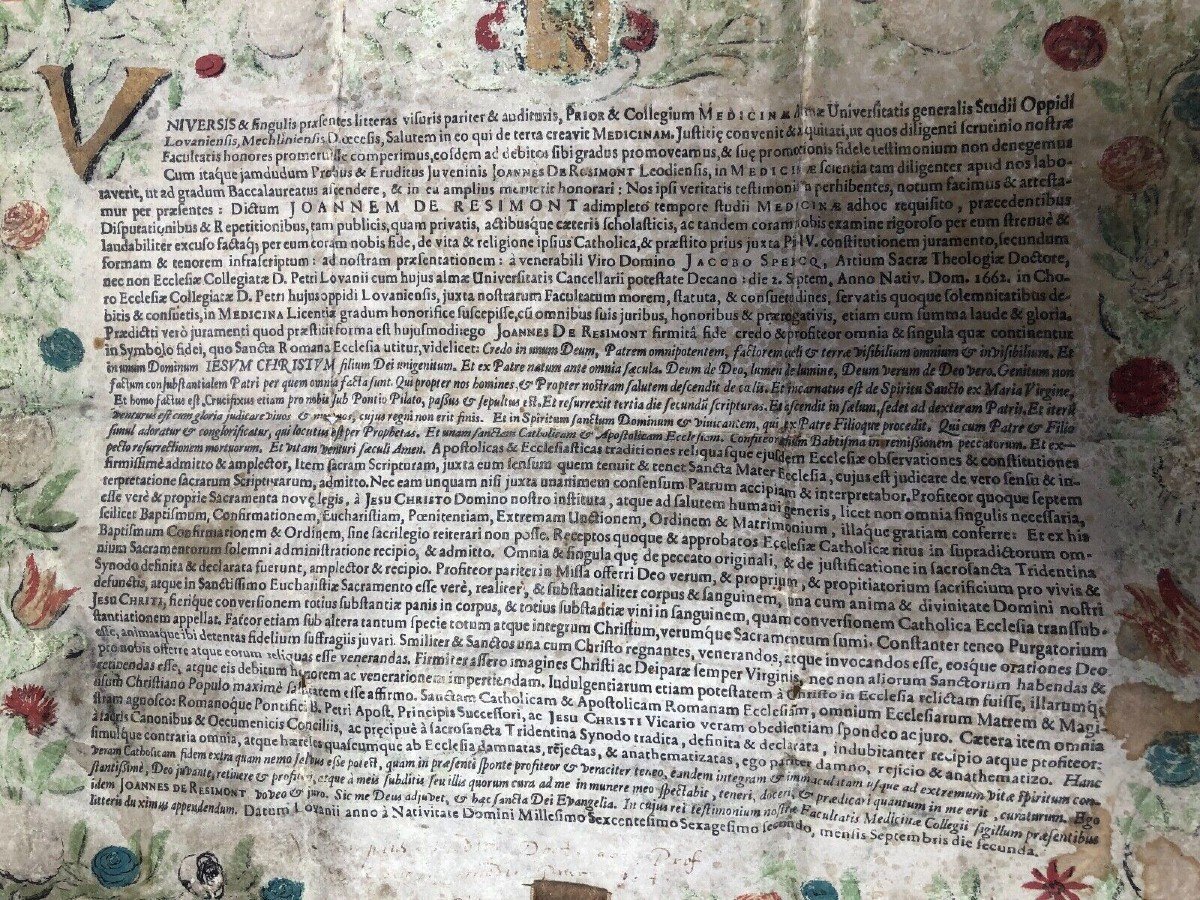 VNIVERSIS & singulis præsentes litteras visuris pariter & audituris, PRIOR & Collegium MEDICINÆ almæ Universitatis generalis Studii Oppidi
Lovaniensis, Mechliniensis Diœcesis, Salutem in eo qui de terra creavit MEDICINAM. Justitię convenit & æquitati, ut quos diligenti scrutinio nostræ
Facultatis honores promeruisse comperimus, eosdem ad debitos sibi gradus promoveamus, & suę promotionis fidele testimonium non denegemus
Cum itaque jamdudum Probus & Eruditus Juveninis JOANNES DE RESIMONT Leodiensis, in MEDICINÆ scientia tam diligenter apud nos labo-
raverit, ut ad gradum Baccalaureatus ascendere, & in eu amplius meruerit honorari: Nos ipsi veritatis testimonium perhibentes, notum facimus & attesta-
mur per præsentes: Dictum JOANNEM DE RESIMONT adimpleto tempore studii MEDICINÆ adhoc requisito, præcedentibus
Disputationibus & Repetitionibus, tam publicis, quam privatis, actibusque cæteris scholasticis, ac tandem coram nobis examine rigoroso per eum strenuè &
laudabiliter excuso factaq; per eum coram nobis fide, de vita & religione ipsius Catholica, & præstito prius juxta Pii IV. constitutionem juramento, secundum
formam & tenorem infrascriptum: ad nostram præsentationem: à venerabili Viro Domino JACOBO SPEECQ, Artium Sacræ Theologiæ Doctore,
nec non Ecclesiæ Collegiatæ D. Petri Lovanii cum hujus almæ Universitatis Cancellarii potestate Decano: die 2. Septem. Anno Nativ. Dom. 1662. in Cho-
ro Ecclesiæ Collegiatæ D. Petri hujus oppidi Lovaniensis, juxta nostrarum Facultatum morem, statuta, & consuetudines, servatis quoque solemnitatibus de-
bitis & consuetis, in MEDICINA Licentiæ gradum honorifice suscepisse, cū omnibus suis juribus, honoribus & prærogativis, etiam cum summa laude & gloria.
Prædicti verò juramenti quod præstitit forma est hujusmodi: ego JOANNES DE RESIMONT firmitâ fide credo & profiteor omnia & singula quæ continentur
in Symbolo fidei, quo Sancta Romana Ecclesia utitur, videlicet: Credo in unum Deum, Patrem omnipotentem, factorem cœli & terræ visibilium omnium & invisibilium. Et
in unum Dominum IESVM CHRISTVM filium Dei unigenitum. Et ex Patre natum ante omnia sæcula. Deum de Deo, lumen de lumine, Deum verum de Deo vero. Genitum non
factum consubstantialem Patri per quem omnia facta sunt. Qui propter nos homines, & Propter nostram salutem descendit de cælis. Et incarnatus est de Spiritu Sancto ex Maria Virgine,
Et homo factus est, Crucifixus etiam pro nobis sub Pontio Pilato, passus & sepultus est. Et resurrexit tertia die secundū scripturas. Et ascendit in cælum, sedet ad dexteram Patris, Et iterū
venturus est cum gloria judicare vivos & mortuos, cujus regni non erit finis. Et in Spiritum sanctum Dominum & vivificantem, qui ex Patre Filioque procedit. Qui cum Patre & Filio
simul adoratur & conglorificatur, qui locutus est per Prophetas. Et unam sanctam Catholicam & Apostolicam Ecclesiam. Confiteor unum Baptisma in remissionem peccatorum. Et ex-
pecto resurrectionem mortuorum. Et vitam venturi sæculi Amen. Apostolicas & Ecclesiasticas traditiones reliquasque ejusdem Ecclesiæ observationes & constitutiones
firmissimè admitto & amplector, Item sacram Scripturam, juxta eum sensum quem tenuit & tenet Sancta Mater Ecclesia, cujus est judicare de vero sensu & in-
terpretatione sacrarum Scripturarum, admitto. Nec eam unquam nisi juxta unanimem consensum Patrum accipiam & interpretabor. Profiteor quoque septem
esse verè & proprie Sacramenta novę legis, à JESU CHRISTO Domino nostro instituta, atque ad salutem humani generis, licet non omnia singulis necessaria,
scilicet Baptismum, Confirmationem, Eucharistiam, Pœnitentiam, Extremam Unctionem, Ordinem & Matrimonium, illaque gratiam conferre: Et ex his
Baptismum Confirmationem & Ordinem, sine sacrilegio reiterari non posse. Receptos quoque & approbatos Ecclesiæ Catholicæ ritus in supradictorum om-
nium Sacramentorum solemni administratione recipio, & admitto. Omnia & singula quę de peccato originali, & de justificatione in sacrosancta Tridentina
Synodo definita & declarata fuerunt, amplector & recipio. Profiteor pariter in Missa offerri Deo verum, & proprium, & propitiatorium sacrificium pro vivis &
defunctis, atque in Sanctissimo Eucharistiæ Sacramento esse verè, realiter, & substantialiter corpus & sanguinem, una cum anima & divinitate Domini nostri
JESU CHRITI, fierique conversionem totius substantiæ panis in corpus, & totius substantiæ vini in sanguinem, quam conversionem Catholica Ecclesia transsub-
stantiationem appellat. Fateor etiam sub altera tantum specie totum atque integrum Christum, verumque Sacramentum sumi. Constanter teneo Purgatorium
esse, animasque ibi detentas fidelium suffragiis juvari. Smiliter & Sanctos una cum Christo regnantes, venerandos, atque invocandos esse, eosque orationes Deo
pro nobis offerre atque eorum reliquas esse venerandas. Firmiter assero imagines Christi ac Deiparæ semper Virginis, nec non aliorum Sanctorum habendas &
retinendas esse, atque eis debitum honorem ac venerationem impertiendam. Indulgentiarum etiam potestatem à Christo in Ecclesia relictam fuisse, illarumq;
usum Christiano Populo maximè salutarem esse affirmo. Sanctam Catholicam & Apostolicam Romanam Ecclesiam, omnium Ecclesiarum Matrem & Magi-
stram agnosco: Romanoque Pontifici B. Petri Apost. Principis Successori, ac JESU CHRISTI Vicario veram obedientiam spondeo ac juro. Cætera item omnia
à sacris Canonibus & Oecumenicis Conciliis, ac pręcipuè à sacrosancta Tridentina Synodo tradita, definita & declarata, indubitanter recipio atque profiteor:
simulque contraria omnia, atque hæreses quascumque ab Ecclesia damnatas, rejectas, & anathematizatas, ego pariter damno, rejicio & anathematizo. Hanc
veram Catholicam fidem extra quam nemo salvus esse potest, quam in præsenti sponte profiteor & veraciter teneo, eandem integram & immaculatam usque ad extremum vitæ spiritum con-
stantissimè, Deo juvante, retinere & profiteri, atque à meis subditis seu illa quorum cura ad me in munere meo spectabit, teneri, doceri, & prædicari quantum in me erit, curaturum. Ego
idem JOANNES DE RESIMONT voveo & juro. Sic me Deus adjuvet, & hæc sancta Dei Evangelia. In cujus rei testimonium nostræ Facultatis Medicinæ Collegii sigillum præsentibus
litteris duximus appendendum. Datum Lovanii anno à Nativitate Domini Millesimo Sexcentesimo Sexagesimo secundo, mensis Septembris die secunda.